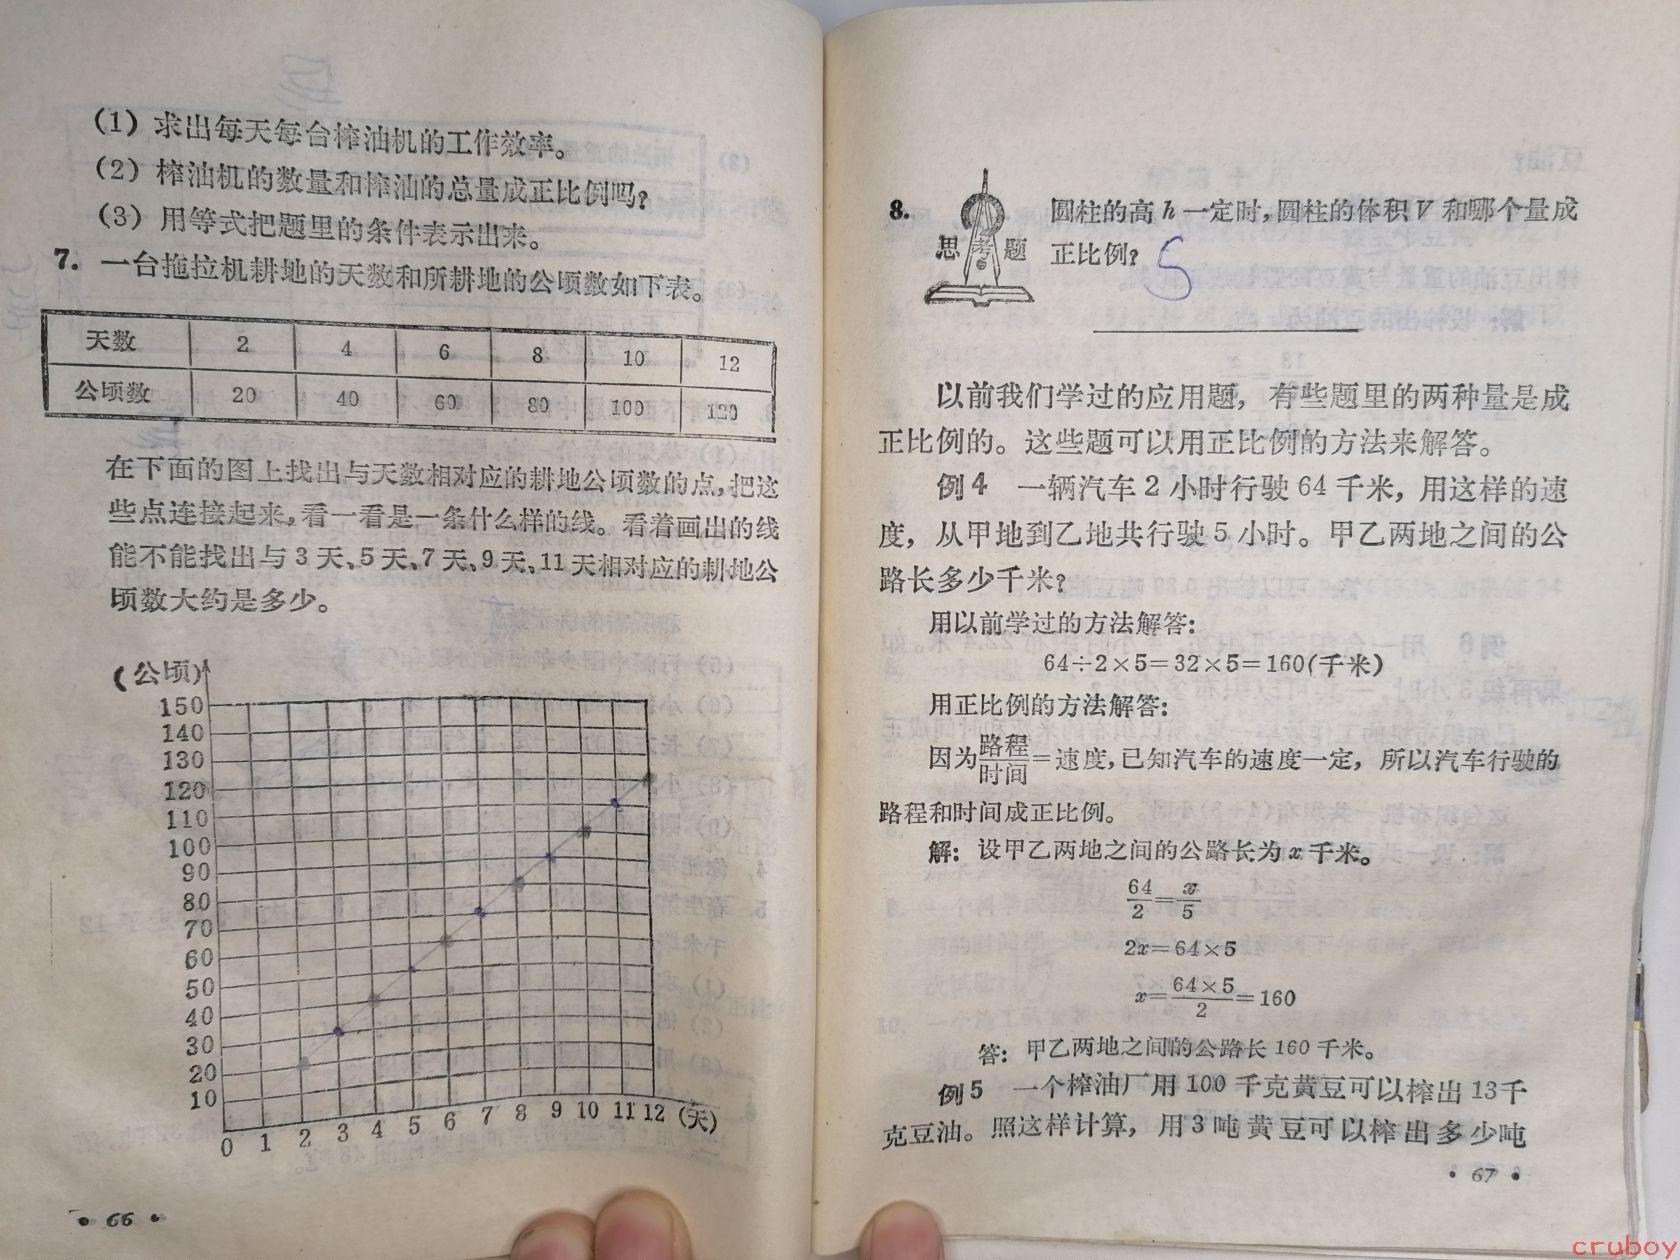 (1) 求出每天每台榨油机的工作效率。
(2) 榨油机的数量和榨油的总量成正比例吗?
(3) 用等式把题里的条件表示出来。
7. 一台拖拉机耕地的天数和所耕地的公顷数如下表。
天数 2 4 6 8 10 12
公顷数 20 40 60 80 100 120
在下面的图上找出与天数相对应的耕地公顷数的点,把这
些点连接起来,看一看是一条什么样的线。看着画出的线
能不能找出与 3 天、5 天、7 天、9 天、11 天相对应的耕地公
顷数大约是多少。
(公顷)
150
140
130
120
110
100
90
80
70
60
50
40
30
20
10
0 1 2 3 4 5 6 7 8 9 10 11 12 (天)
• 66 •
8. 思考题 圆柱的高 h 一定时,圆柱的体积 V 和哪个量成
正比例? S
以前我们学过的应用题,有些题里的两种量是成
正比例的。这些题可以用正比例的方法来解答。
例4 一辆汽车 2 小时行驶 64 千米,用这样的速
度,从甲地到乙地共行驶 5 小时。甲乙两地之间的公
路长多少千米?
用以前学过的方法解答:
64÷2×5=32×5=160(千米)
用正比例的方法解答:
因为路程/时间=速度,已知汽车的速度一定,所以汽车行驶的
路程和时间成正比例。
解: 设甲乙两地之间的公路长为 x 千米。
64/2=x/5
2x=64×5
x=64×5/2=160
答: 甲乙两地之间的公路长 160 千米。
例5 一个榨油厂用 100 千克黄豆可以榨出 13 千
克豆油。照这样计算,用 3 吨黄豆可以榨出多少吨
• 67 •
cruboy